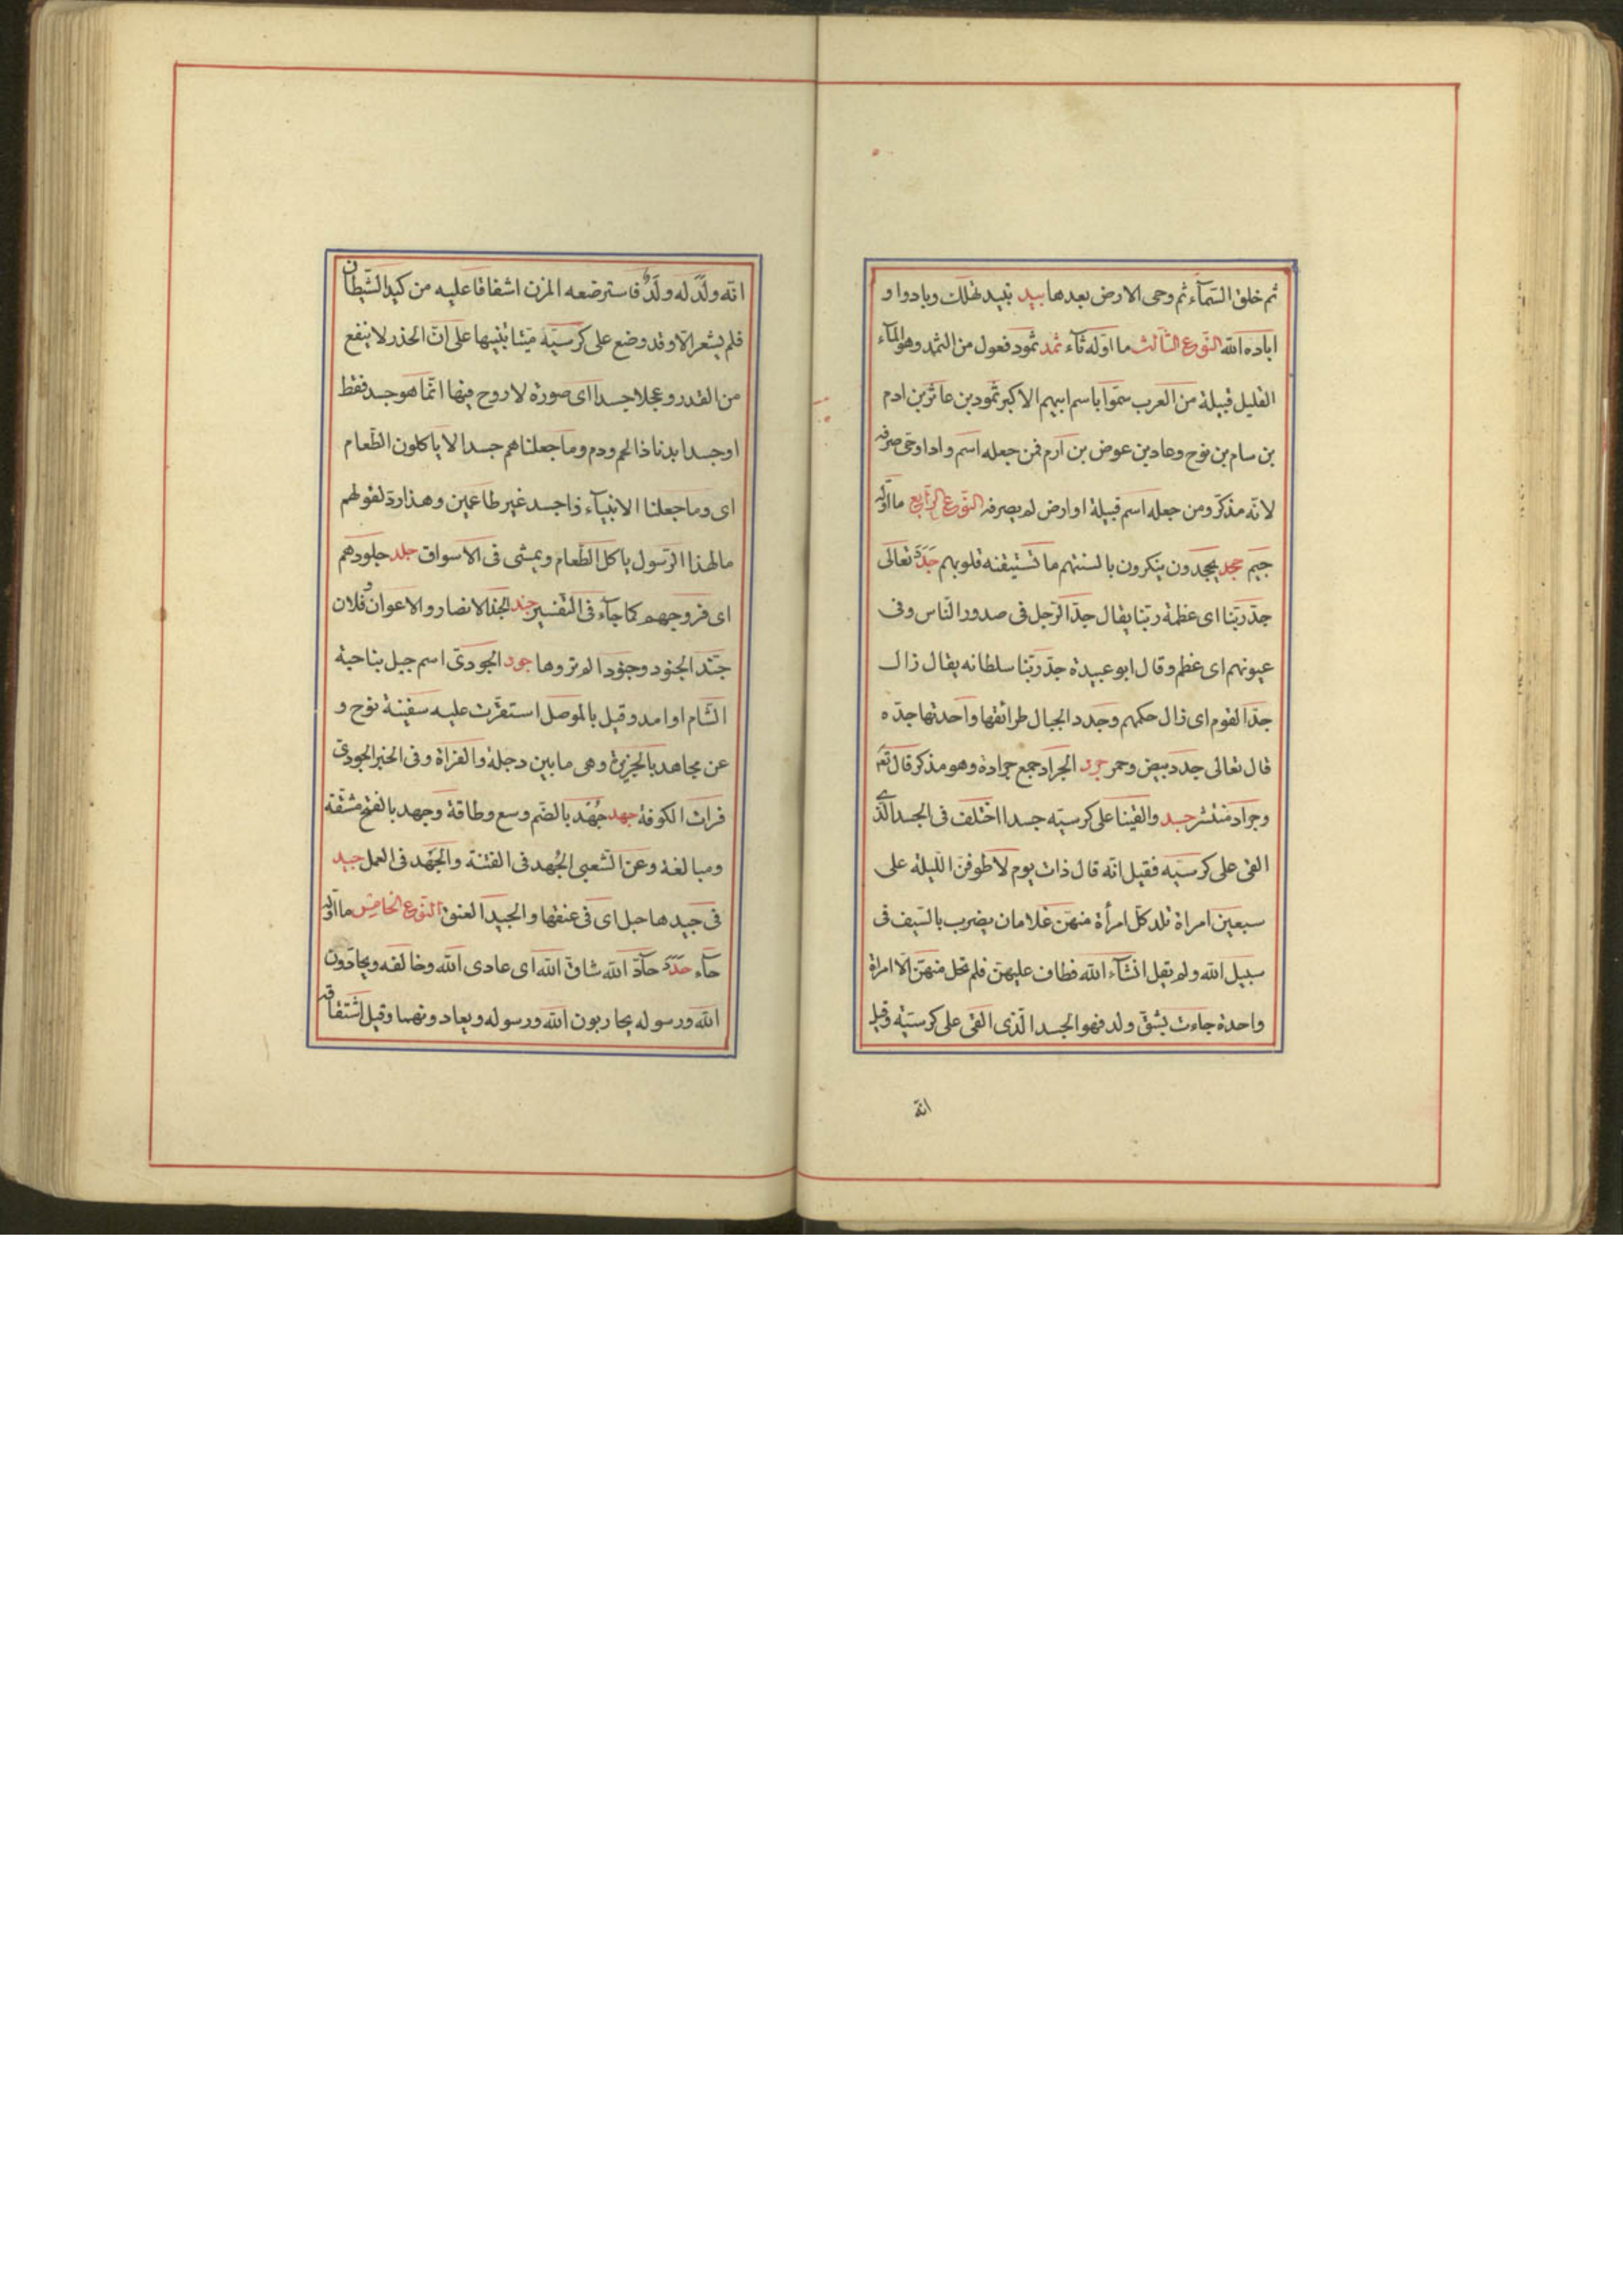 ثم خلق السّمآء ثم وحى الارض بعدها بيد تبيد تهلك وبادوا و
اباده الله النّوع الثّالث ما اوّله ثآء ثمد ثمود فعول من الثمد وهو المآء
القليل قبيلة من العرب سمّوا باسم ابيهم الاكبر ثمود بن عاثر بن ادم
بن سام بن نوح وعاد بن عوض بن آرم فمن جعله اسم واد اوحى صرفه
لانّه مذكّر ومن جعله اسم قبيلة او ارض لم يصرفه النّوع الرّابع ما اوّله
جيم جحد يجحدون ينكرون بالسنتهم ما تستيقنه قلوبهم جدد تعالى
جدّ ربّنا اى عظمة ربّنا يقال جدّ الرّجل فى صدور النّاس وفى
عيونهم اى عظم وقال ابو عبيدة جدّ ربّنا سلطانه يقال زال
جدّ القوم اى زال حكمهم وجدد الجبال طرائقها واحدتها جدّه
قال تعالى جدد بيض وحمر جرد الجراد جمع جرادة وهو مذكر قال تعم
وجراد منتشر جسد والقينا على كرسيّه جسدا اختلف فى الجسد الّذى
القى على كرسيّه فقيل انّه قال ذات يوم لاطوفنّ اللّيلة على
سبعين امراة تلد كلّ امرأة منهنّ غلامان يضرب بالسّيف فى
سبيل الله ولم يقل انشآء الله فطاف عليهنّ فلم تحل منهنّ الا امراة
واحدة جاءت بشقّ ولد فهو الجسد الّذى القى على كرسيّه وقيل
انّه
انّه ولد له ولد فاسترضعه المزن اشفاقا عليه من كيد الشّيطان
فلم يشعر الّا وقد وضع على كرسيّه ميّتا تنبيها على انّ الحذر لا ينفع
من القدر وعجلا جسدا اى صورة لا روح فيها انّما هو جسد فقط
اوجسدا بدنا ذا لحم ودم وما جعلناهم جسدا لا ياكلون الطّعام
اى وما جعلنا الانبيآء ذا جسد غير طاعمين وهذا ردّ لقولهم
مالهذا الرّسول ياكل الطّعام ويمشى فى الاسواق جلد جلودهم
اى فروجهم كما جآء فى التفسير جند الجند الانصار والاعوان وفلان
جنّد الجنود وجنودا لم تروها جود الجودىّ اسم جبل بناحية
الشّام او امد وقيل بالموصل استقرّت عليه سفينة نوح و
عن مجاهد بالجزيرة وهى ما بين دجلة والفراة وفى الخبر الجودىّ
فرات الكوفة جهد جُهد بالضّم وسع وطاقة وجهد بالفتح مشقّة
ومبالغة وعن الشّعبى الجُهد فى القتنة والجَهد فى العمل جيد
فى جيدها حبل اى فى عنقها والجيد العنق النّوع الخامس ما اوّله
حآء حدد حآدّ الله شاقّ الله اى عادى الله وخالفه ويحادّون
الله ورسوله يحاربون الله ورسوله ويعادونهما وقيل اشتقاقه